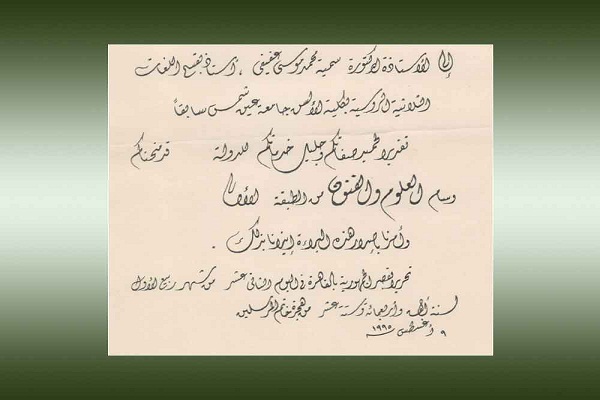 إلى الأستاذة الدكتورة سمية محمد موسى عفيفي ، أستاذ بقسم اللغات
السلافية الروسية بكلية الألسن جامعة عين شمس سابقاً
تقديراً لحميد صفاتكم وجليل خدماتكم للدولة قد منحناكم
وسام العلوم والفنون من الطبقة الأولى
وأمرنا بإصدار هذه البراءة إيذانا بذلك .
تحريراً بقصر الجمهورية بالقاهرة فى اليوم الثانى عشر من شهر ربيع الأول
لسنة ألف وأربعمائة وستة عشر من هجرة خاتم المرسلين
٩ أغسطس ١٩٩٥